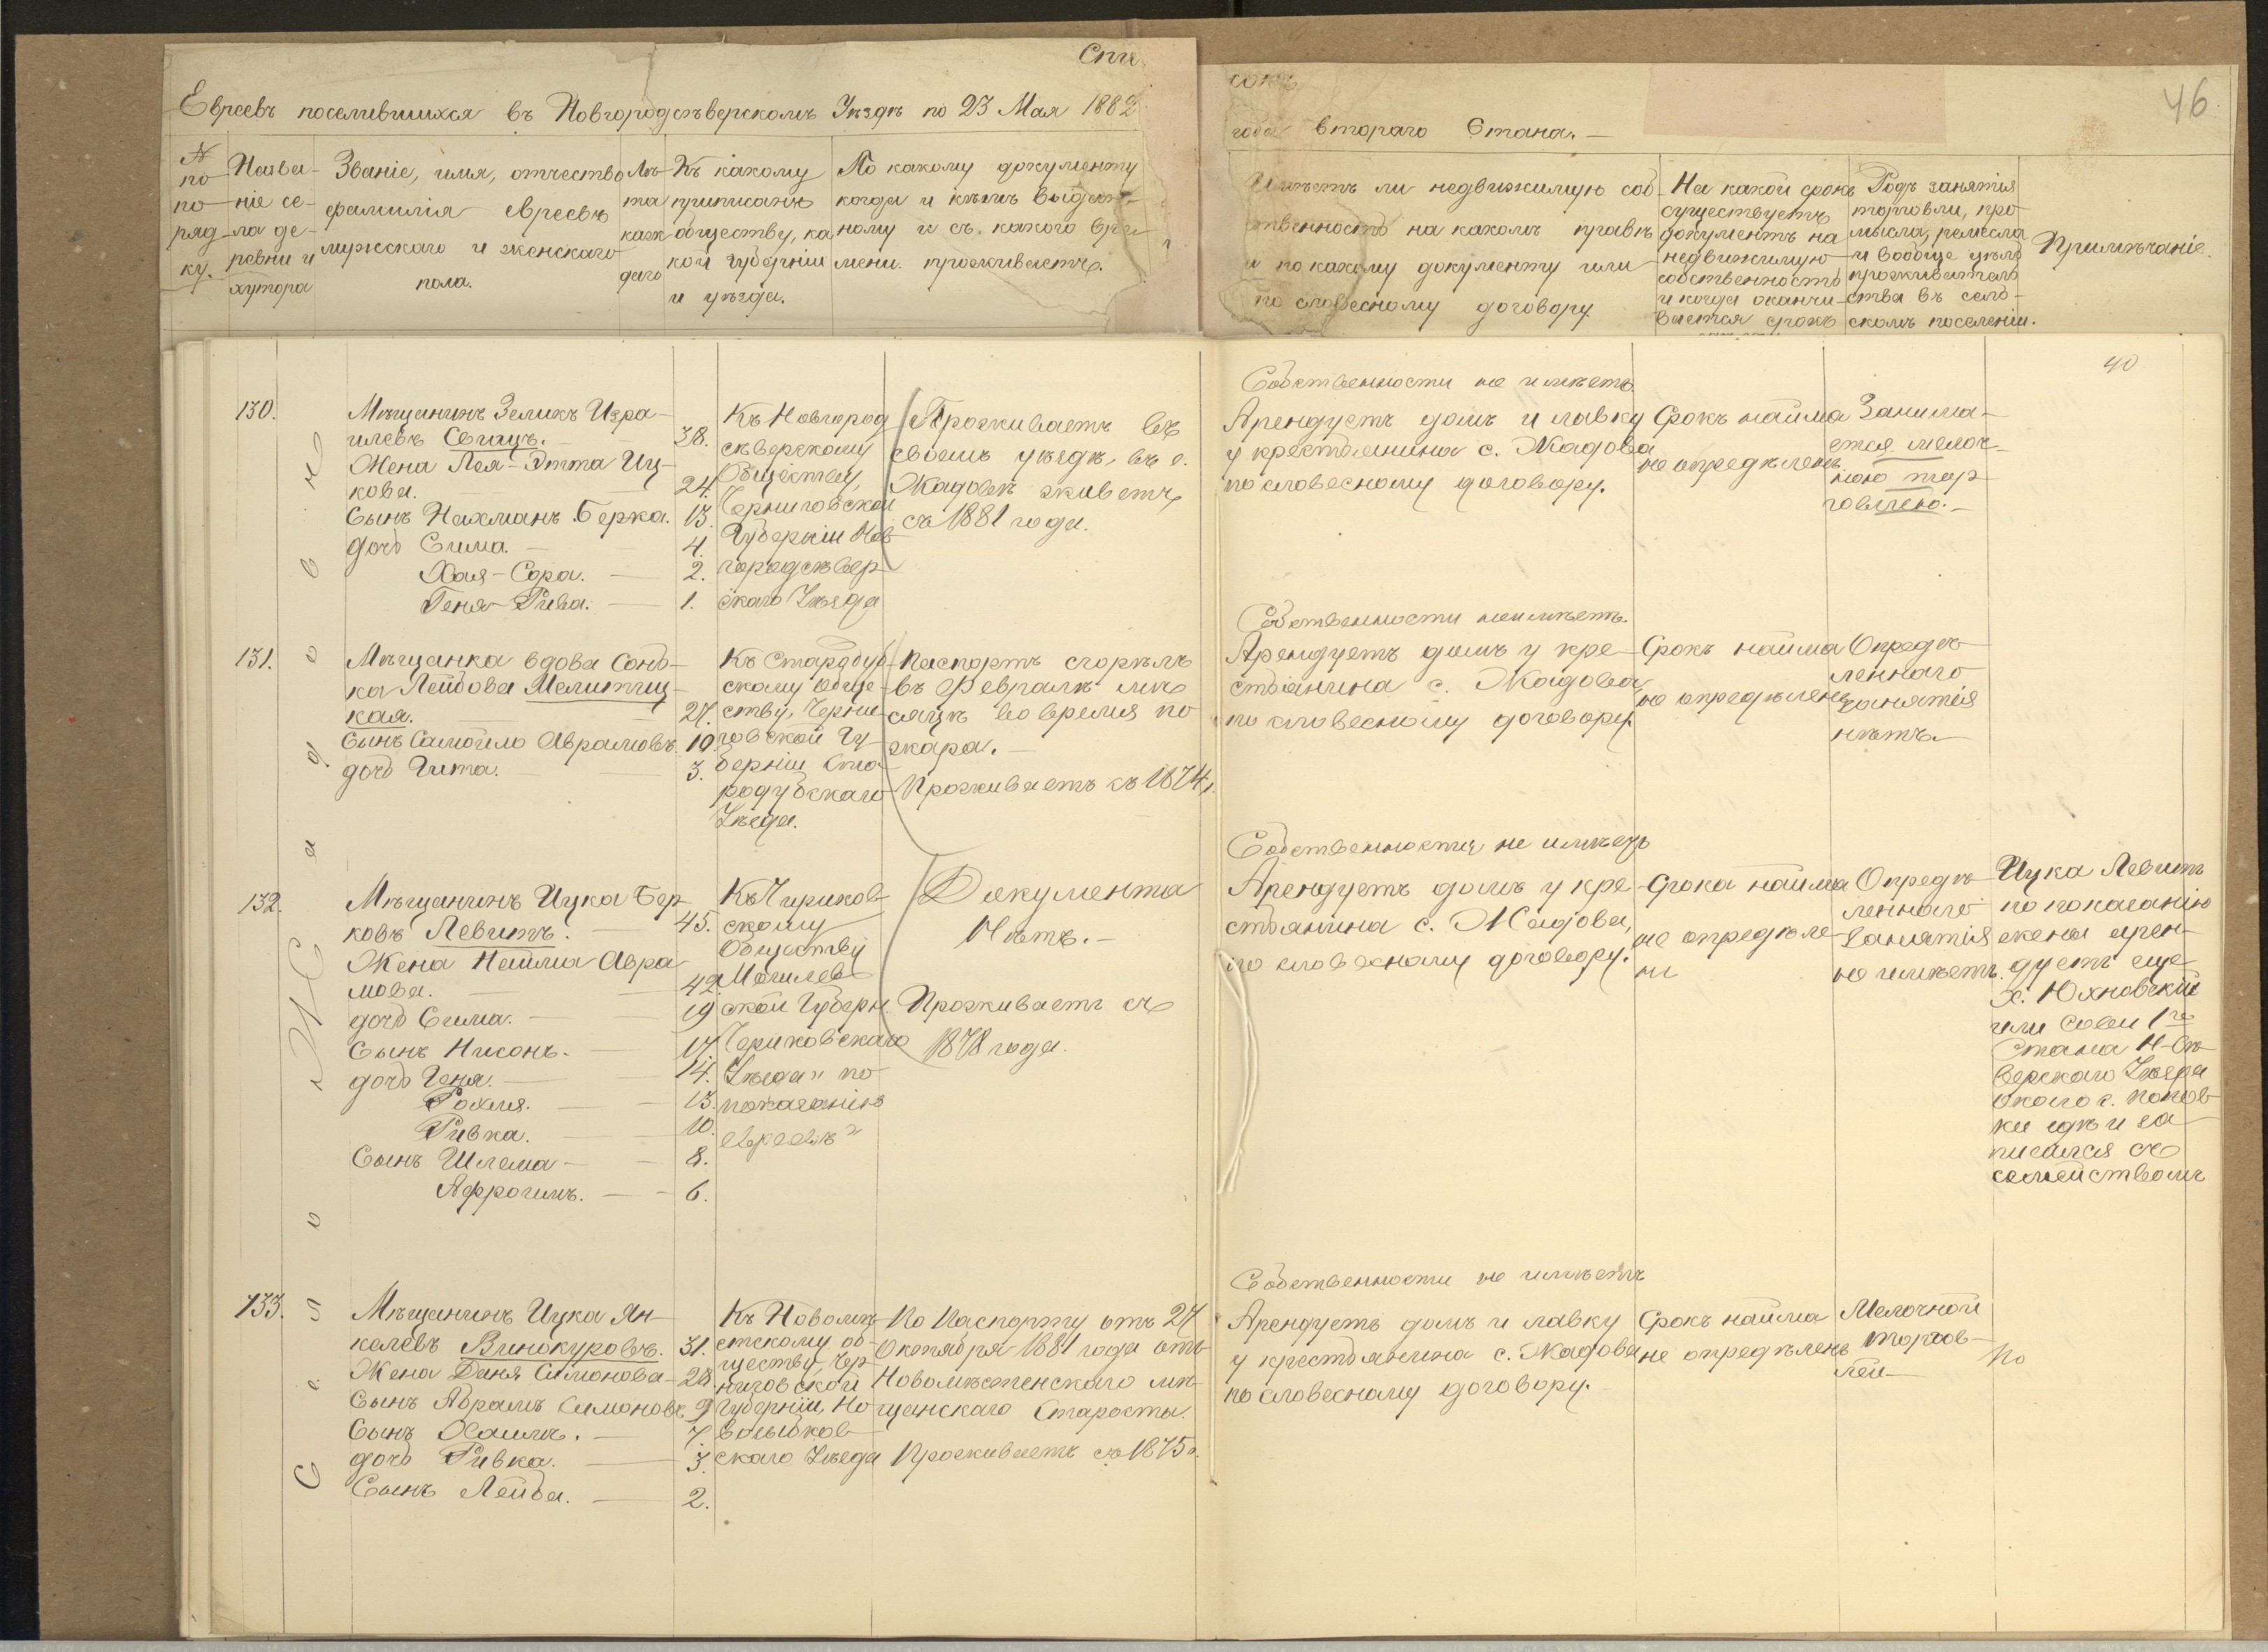 Спи
сокъ
46
Евреевъ поселившихся въ Новгородсѣверскомъ Уѣздѣ по 23 Мая 1882
года втораго Стана. —
№ по по ряд ку.
Назва-
ніе се-
ла де-
ревни и
хутора
Званіе, имя, отчество
фамилія евреевъ
мужскаго и женскаго
пола.
Лѣ-
та
каж
даго
Къ какому
приписанъ
обществу, ка
кой губерніи
и уѣзда.
По какому документу
когда и кѣмъ выдан-
ному и съ какого вре-
мени проживаетъ.
Имѣетъ ли недвижимую соб-
ственность на какомъ правѣ
и по какому документу или
по словесному договору
На какой срокъ
существуетъ
документъ на
недвижимую
собственность
и когда оканчи-
вается срокъ
Родъ занятія
торговли, про
мысла, ремесла
и вообще цѣль
прожитель
ства въ сель-
скомъ поселеніи.
Примѣчаніе.
40
Село Жадово
130.
Мѣщанинъ Зеликъ Изра-
илевъ Свищъ. 38.
Жена Лея-Этта Иц-
кова. 24.
Сынъ Нахманъ Берка. 13.
дочь Сима. — 4.
Хая-Сора. — 2.
Геня-Рива. — 1.
Къ Новгород
сѣверскому
Обществу,
Черниговской
Губерніи Нов
городсѣвер
скаго Уѣзда
Проживаетъ въ
своемъ уѣздѣ, въ с.
Жадовѣ живетъ
съ 1881 года.
Собственности не имѣетъ
Арендуетъ домъ и лавку
у крестьянина с. Жадова
по словесному договору.
Срокъ найма
не опредѣленъ.
Занима-
ется мелоч-
ною тор
говлею. —
131.
Мѣщанка вдова Сонь-
ка Лейбова Мелитиц-
кая. 27.
Сынъ Самойло Абрамовъ. 10.
дочь Гита. 3.
Къ Стародуб-
скому обще-
ству, Черни-
говской Гу-
берніи Ста
родубскаго
Уѣзда.
Паспортъ сгорѣлъ
въ Февралѣ мѣ-
сяцѣ во время по
жара. —
Проживаетъ съ 1874 г.
Собственности неимѣетъ.
Арендуетъ домъ у кре-
стьянина с. Жадова
по словесному договору.
Срокъ найма
не опредѣленъ
Опредѣ-
леннаго
занятія
нѣтъ. —
132.
Мѣщанинъ Ицка Бер
ковъ Левитъ. 45.
Жена Нешма Авра
мова. 42.
дочь Сима. — 19
Сынъ Нисонъ. 17.
дочь Геня. — 14.
Рохля. — 13.
Ривка. 10.
Сынъ Шлема — 8.
Афроимъ. — 6.
Къ Чериков-
скому
Обществу
Могилев-
ской Губерн.
Чериковскаго
Уѣзда "по
показанію
евреевъ"
Документа
Нѣтъ. —
Проживаетъ съ
1878 года.
Собственности не имѣетъ
Арендуетъ домъ у кре-
стьянина с. Жадова,
по словесному договору.
Срока найма
не опредѣле-
ни
Опредѣ-
леннаго
занятія
не имѣетъ.
Ицка Левитъ
по показанію
жены арен-
дуетъ еще
х. Юхновскій
или Совы 1го
Стана Н-Сѣ-
верскаго Уѣзда
около с. Попов-
ки гдѣ и за
писался съ
семействомъ
133.
Мѣщанинъ Ицка Ян-
келевъ Винокуровъ. 31.
Жена Даня Симонова — 28.
Сынъ Абрамъ Симоновъ 9
Сынъ Хаимъ. — 7.
дочь Ривка. — 3.
Сынъ Лейба. — 2.
Къ Новомѣ-
стскому об-
ществу, Чер-
ниговской
Губерніи, Но
возыбков-
скаго Уѣзда
По Паспорту отъ 27
Октября 1881 года отъ
Новомѣстенскаго мѣ-
щанскаго Старосты.
Проживаетъ съ 1875 г.
Собственности не имѣетъ
Арендуетъ домъ и лавку
у крестьянина с. Жадова
по словесному договору.
Срокъ найма
не опредѣленъ
Мелочной
торгов-
лей —
По